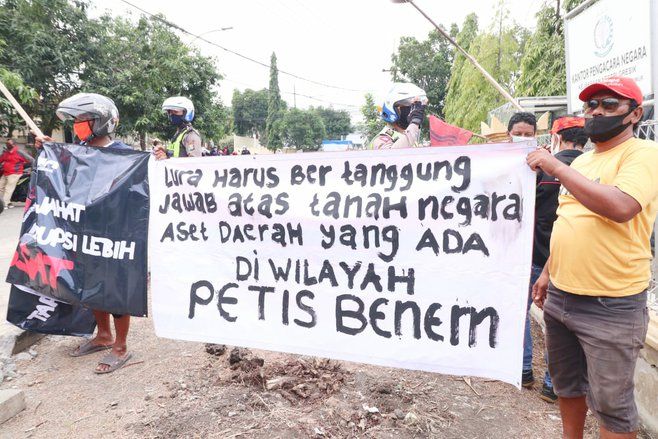 Lura Harus Ber tanggung
Jawab atas tanah negara
Aset Daerah yang ADA
Di WILAYAH
PETIS Benem
UPSI LEBIH
KANTOR PENGACARA NEGARA